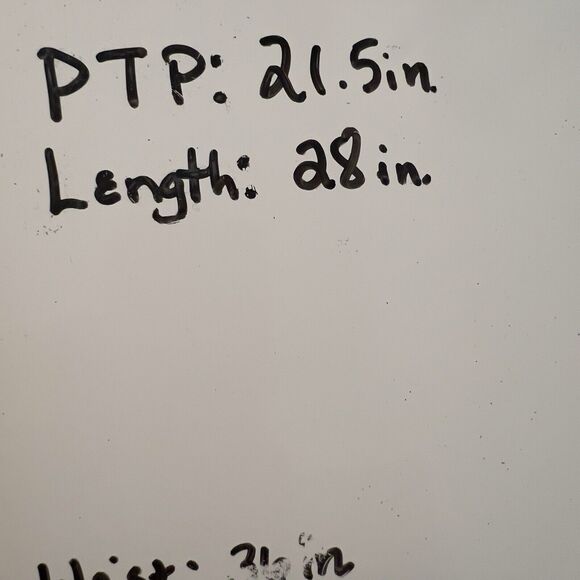 PTP: 21.5in.
Length: 28in.
Waist: 36 in